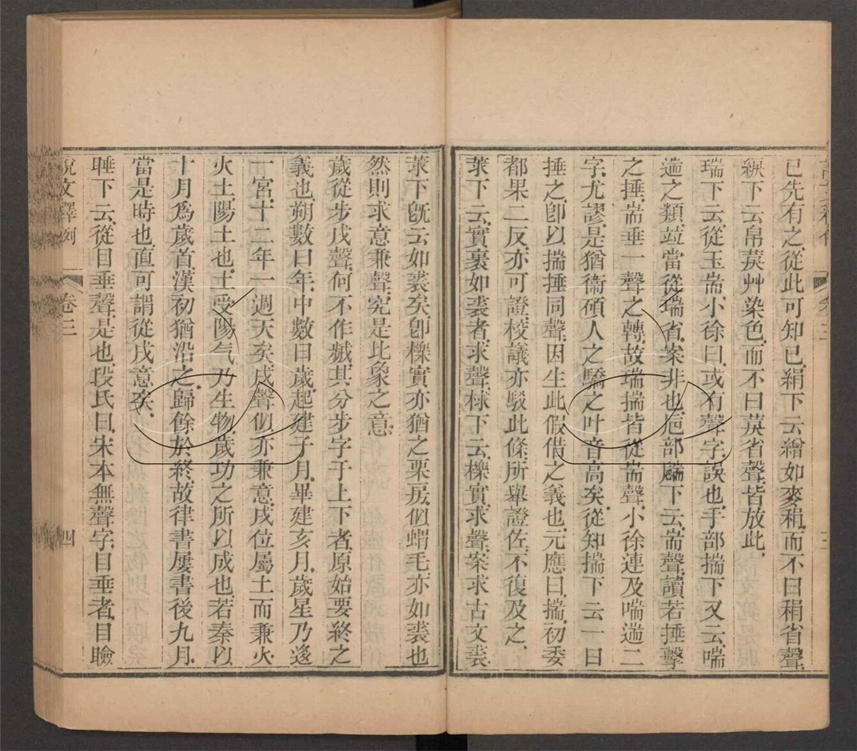 已先有之從此可知已絹下云繒如麥䅌而不曰䅌省聲
綟下云帛䓞艸染色而不曰䓞省聲皆放此
瑞下云從玉耑小徐曰或有聲字誤也手部揣下又云喘
遄之類竝當從瑞省案非也卮部𡭐下云耑聲讀若捶擊
之捶耑垂一聲之轉故瑞揣皆從耑聲小徐連及喘遄二
字尤謬是猶衞碩人之驕之叶音高矣從知揣下云一曰
捶之卽㠯揣捶同聲因生此假借之義也元應曰揣初委
都果二反亦可證校議亦駁此條所舉證佐不復及之
莍下云實裏如裘者求聲梂下云櫟實求聲案求古文裘
莍下旣云如裘矣卽櫟實亦猶之栗房佀蝟毛亦如裘也
然則求意兼聲究是比象之意
歲從步戌聲何不作䟸其分步字于上下者原始要終之
義也朔數曰年中數曰歲起建子月畢建亥月歲星乃逡
一宮十二年一週天矣戌聲佀亦兼意戌位屬土而兼火
火土陽土也土受陽气乃生物歲功之所㠯成也若秦㠯
十月爲歲首漢初猶沿之歸餘於終故律書屢書後九月
當是時也直可謂從戌意矣
睡下云從目垂聲是也段氏曰宋本無聲字目垂者目瞼
說文釋例
卷三
四